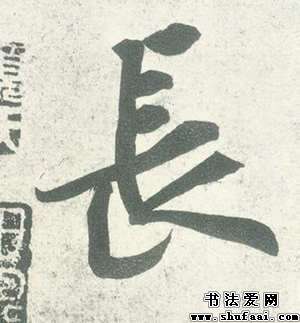 長
书法爱网
www.shufaai.com